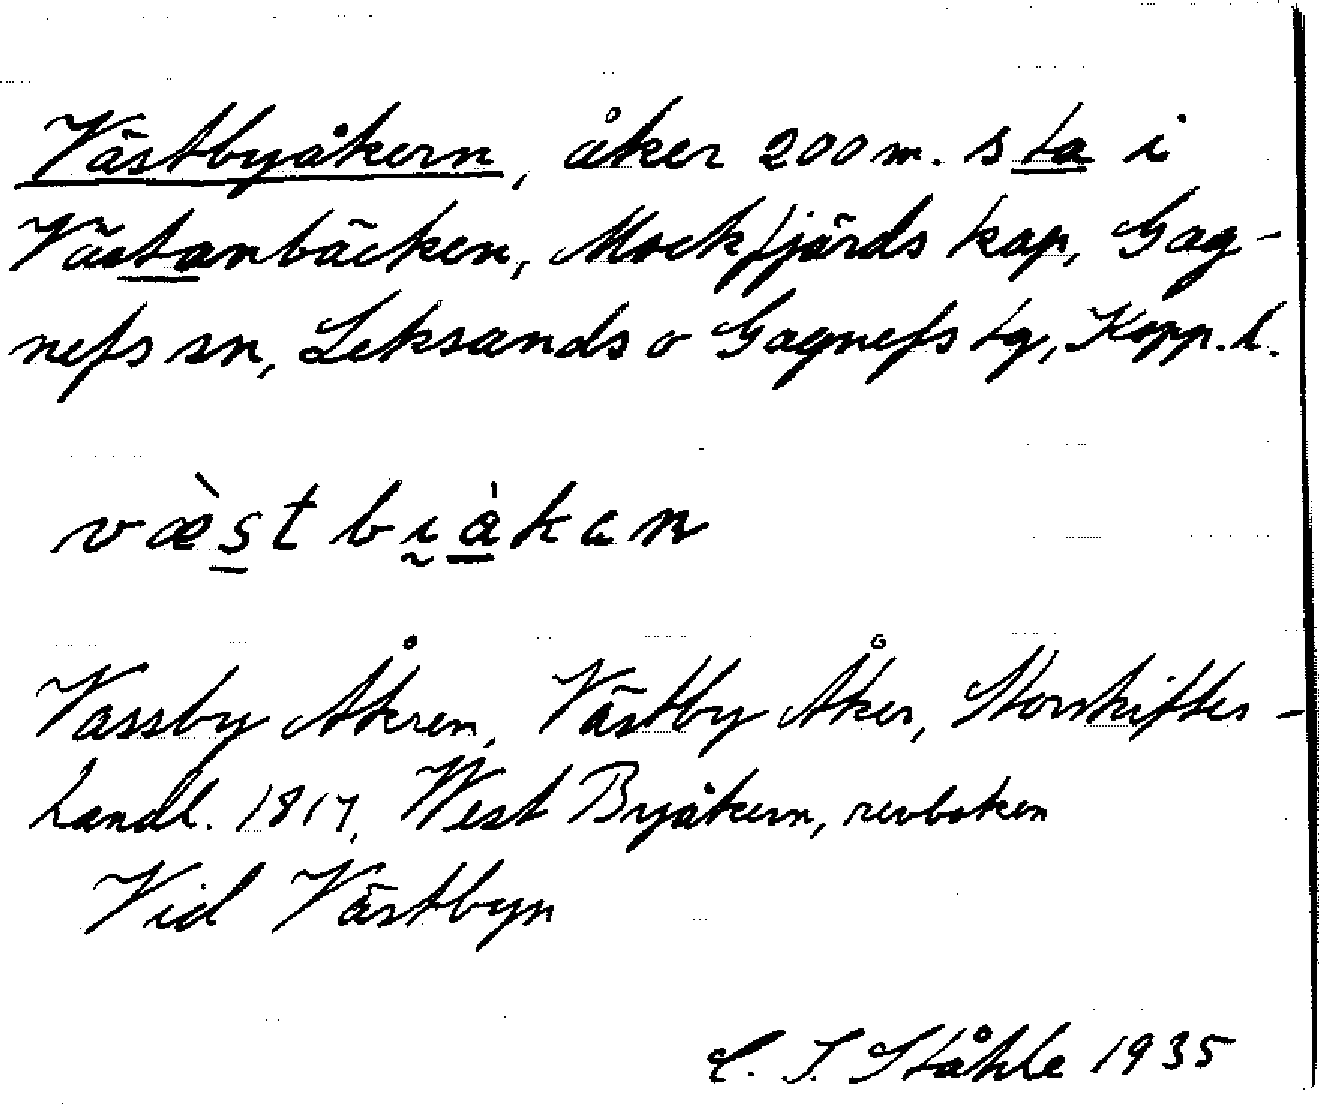 Västbyåkern, åker 200 m. s ta i
Västanbäcken, Mockfjärds kap, Gag-
nefs sn, Leksands o Gagnefs tg, Kopp. l.
væ̀stbıåkan
Vassby Åkren, Västby Åker, Storskiftes-
handl. 1817, West Byåkern, revboken
Vid Västbyn
C. I. Ståhle 1935